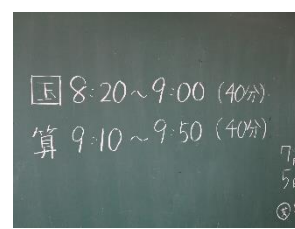 国 8:20～9:00 (40分)
算 9:10～9:50 (40分)